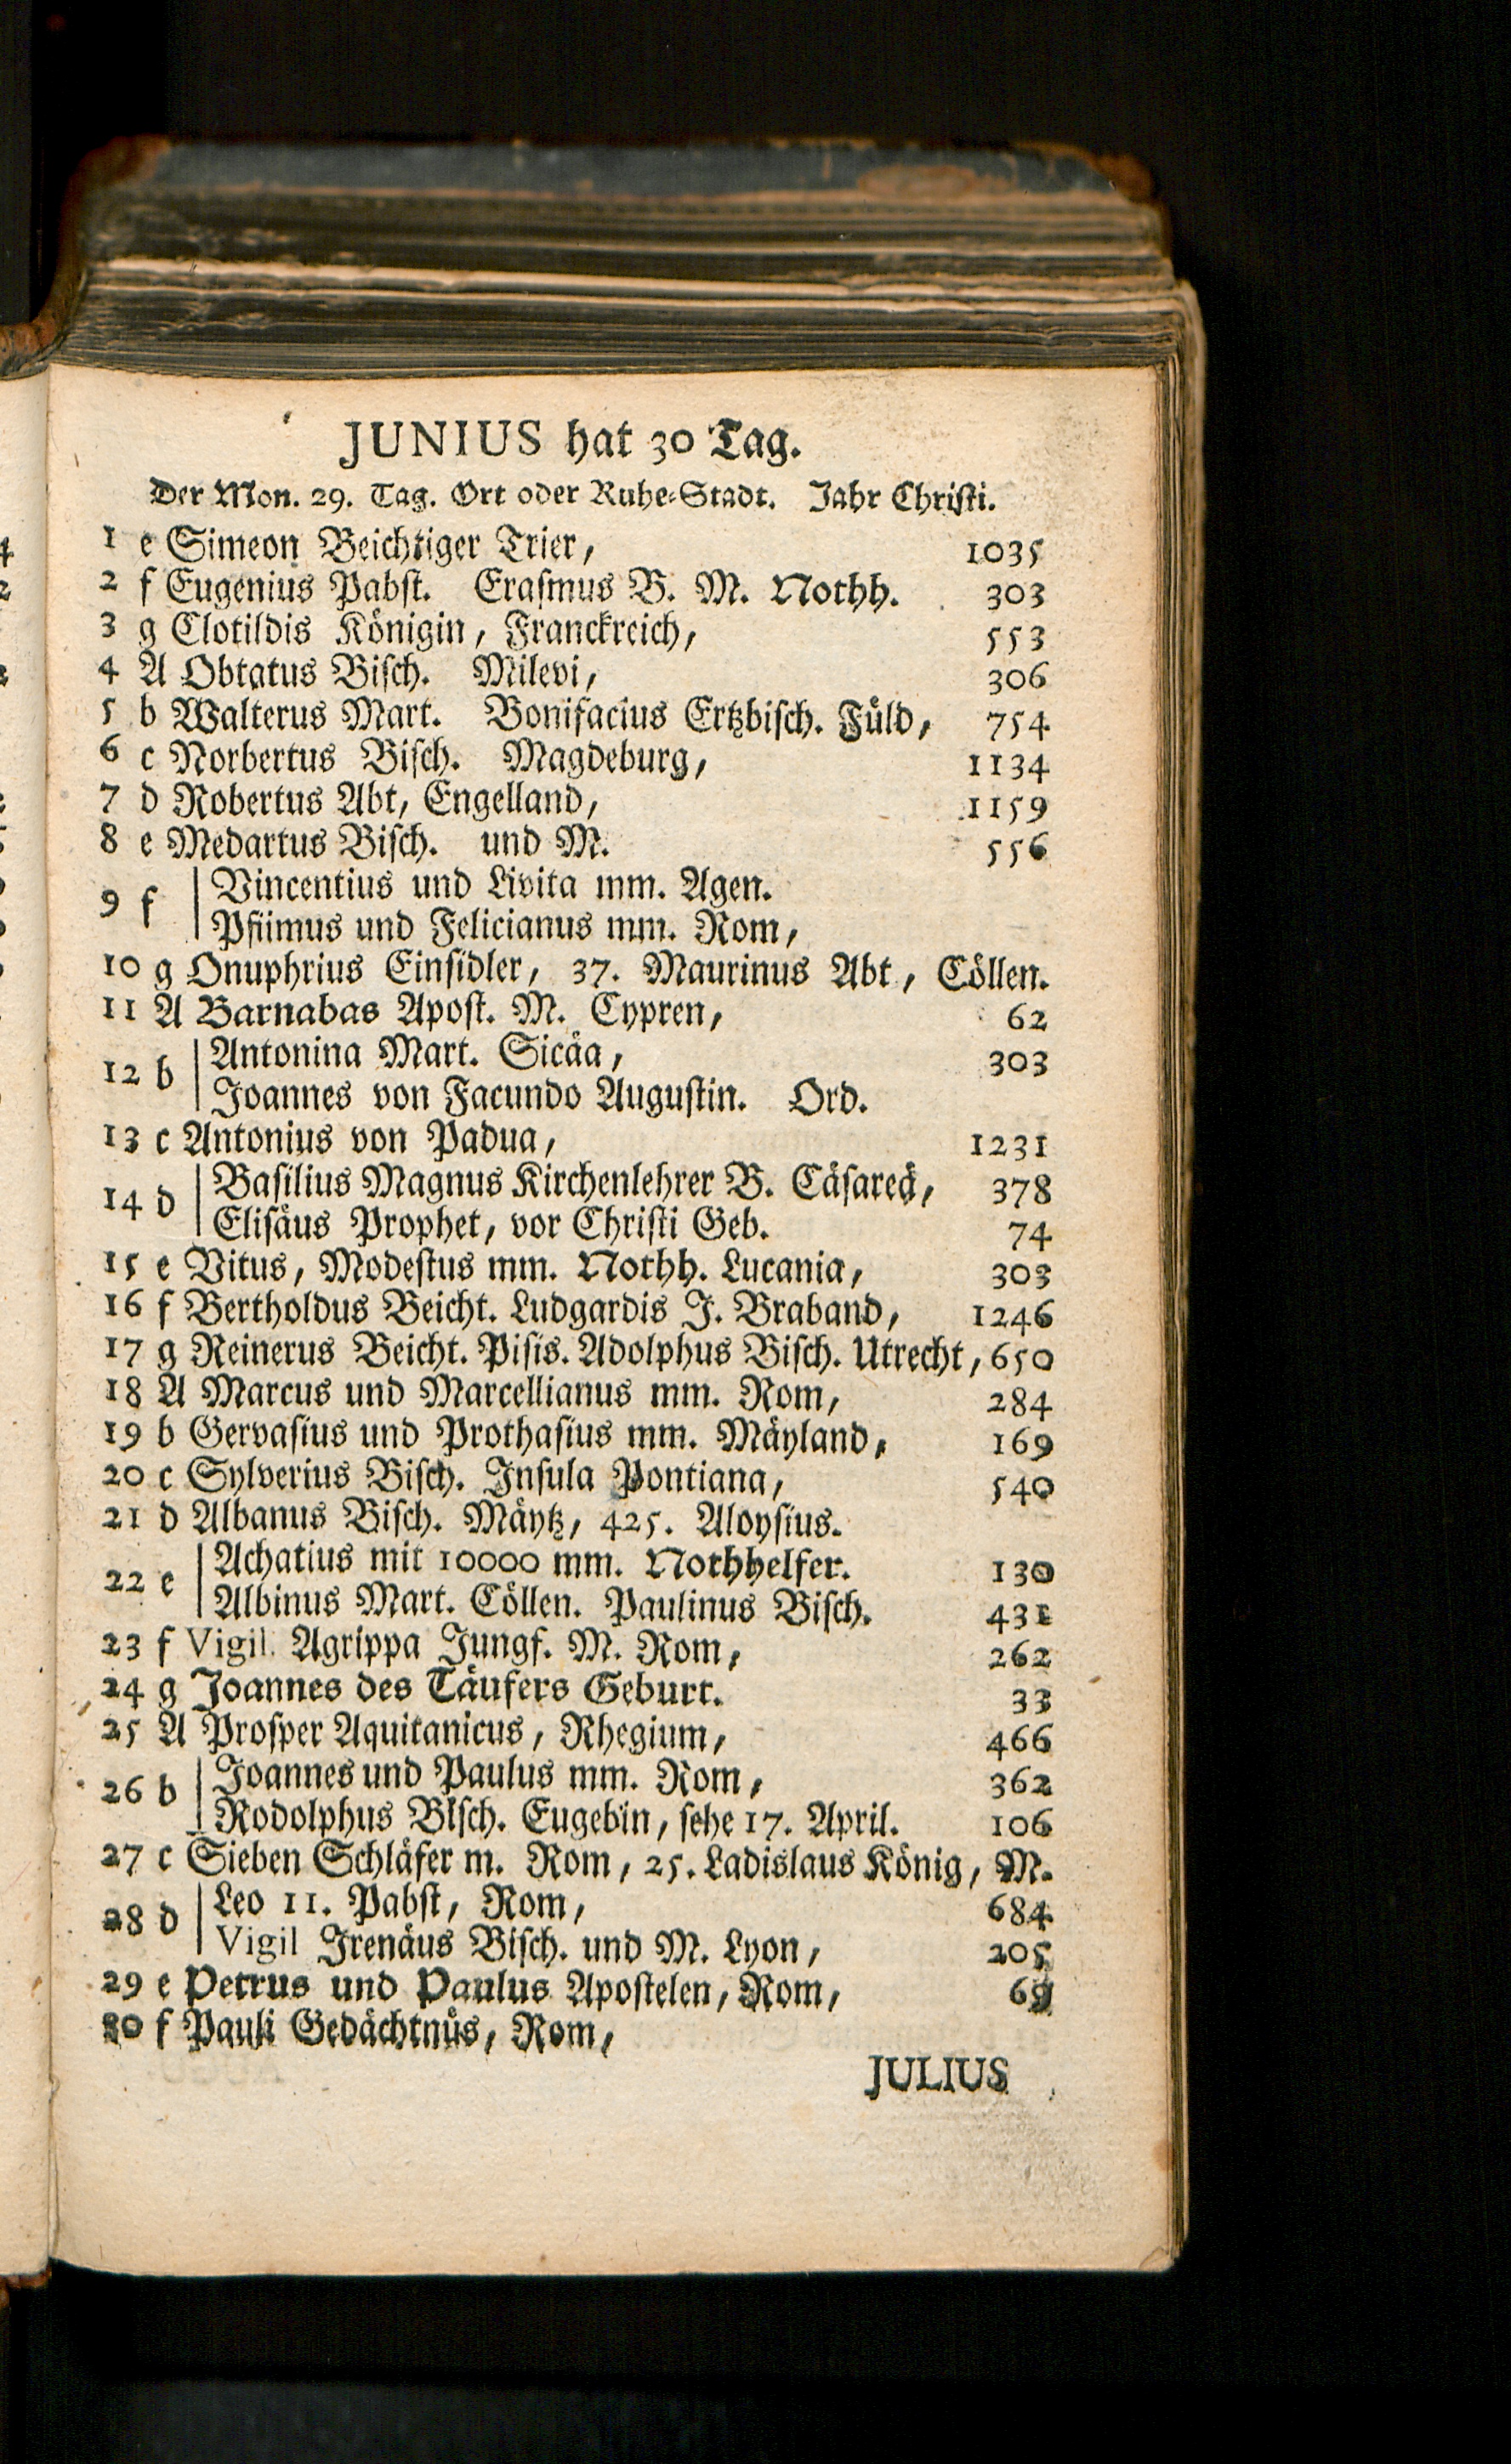 JUNIUS hat 30 Tag.
Der Mon. 29. Tag. Ort oder Ruhe-Stadt. Jahr Christi.
1 e Simeon Beichtiger Trier, 1035
2 f Eugenius Pabst. Erasmus B. M. Nothh. 303
3 g Clotildis Königin, Franckreich, 553
4 A Obtatus Bisch. Milevi, 306
5 b Walterus Mart. Bonifacius Ertzbisch. Füld, 754
6 c Norbertus Bisch. Magdeburg, 1134
7 d Robertus Abt, Engelland, 1159
8 e Medartus Bisch. und M. 556
9 f Vincentius und Livita mm. Agen.
Pfiimus und Felicianus mm. Rom,
10 g Onuphrius Einsidler, 37. Maurinus Abt, Cöllen.
11 A Barnabas Apost. M. Cypren, 62
12 b Antonina Mart. Sicäa, 303
Joannes von Facundo Augustin. Ord.
13 c Antonius von Padua, 1231
14 d Basilius Magnus Kirchenlehrer B. Cäsareä, 378
Elisäus Prophet, vor Christi Geb. 74
15 e Vitus, Modestus mm. Nothh. Lucania, 303
16 f Bertholdus Beicht. Ludgardis J. Braband, 1246
17 g Reinerus Beicht. Pisis. Adolphus Bisch. Utrecht, 650
18 A Marcus und Marcellianus mm. Rom, 284
19 b Gervasius und Prothasius mm. Mäyland, 169
20 c Sylverius Bisch. Insula Pontiana, 540
21 d Albanus Bisch. Mäytz, 425. Aloysius.
22 e Achatius mit 10000 mm. Nothhelfer. 130
Albinus Mart. Cöllen. Paulinus Bisch. 431
23 f Vigil. Agrippa Jungf. M. Rom, 262
24 g Joannes des Täufers Geburt. 33
25 A Prosper Aquitanicus, Rhegium, 466
26 b Joannes und Paulus mm. Rom, 362
Rodolphus Bisch. Eugebin, sehe 17. April. 106
27 c Sieben Schläfer m. Rom, 25. Ladislaus König, M.
28 d Leo 11. Pabst, Rom, 684
Vigil Irenäus Bisch. und M. Lyon, 205
29 e Petrus und Paulus Apostelen, Rom, 69
30 f Pauli Gedächtnüs, Rom,
JULIUS